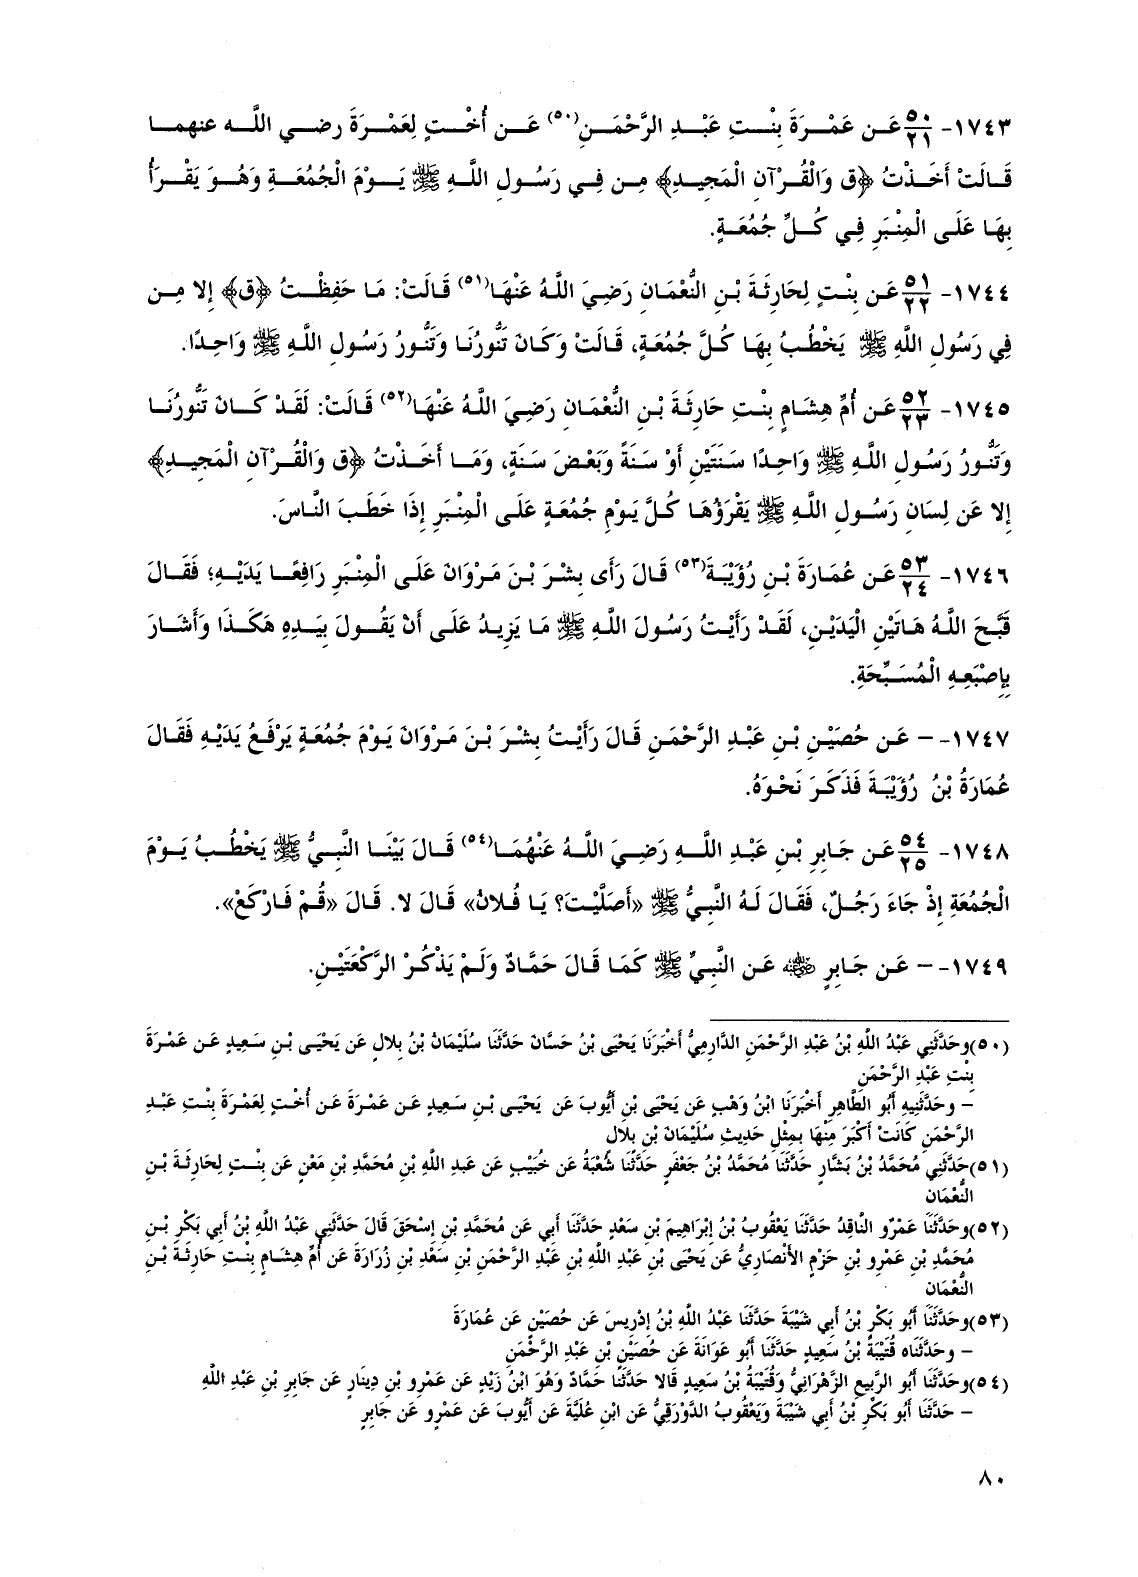 ١٧٤٣- ٥٠/٢١ عَن عَمْرَةَ بِنْتِ عَبْدِ الرَّحْمَنِ(٥٠) عَن أُخْتٍ لِعَمْرَةَ رضي الله عنهما
قَالَتْ أَخَذْتُ ﴿ق وَالْقُرْآنِ الْمَجِيدِ﴾ مِن فِي رَسُولِ اللهِ ﷺ يَوْمَ الْجُمُعَةِ وَهُوَ يَقْرَأُ
بِهَا عَلَى الْمِنْبَرِ فِي كُلِّ جُمُعَةٍ.
١٧٤٤- ٥١/٢٢ عَن بِنْتٍ لِحَارِثَةَ بْنِ النُّعْمَانِ رَضِيَ اللَّهُ عَنْهَا(٥١) قَالَتْ: مَا حَفِظْتُ ﴿ق﴾ إلا مِن
فِي رَسُولِ اللَّهِ ﷺ يَخْطُبُ بِهَا كُلَّ جُمُعَةٍ، قَالَتْ وَكَانَ تَنُّورُنَا وَتَنُّورُ رَسُولِ اللَّهِ ﷺ وَاحِدًا.
١٧٤٥- ٥٢/٢٣ عَن أُمِّ هِشَامٍ بِنْتِ حَارِثَةَ بْنِ النُّعْمَانِ رَضِيَ اللَّهُ عَنْهَا(٥٢) قَالَتْ: لَقَدْ كَانَ تَنُّورُنَا
وَتَنُّورُ رَسُولِ اللهِ ﷺ وَاحِدًا سَنَتَيْنِ أَوْ سَنَةً وَبَعْضَ سَنَةٍ، وَمَا أَخَذْتُ ﴿ق وَالْقُرْآنِ الْمَجِيدِ﴾
إلا عَن لِسَانِ رَسُولِ اللهِ ﷺ يَقْرَؤُهَا كُلَّ يَوْمِ جُمُعَةٍ عَلَى الْمِنْبَرِ إِذَا خَطَبَ النَّاسَ.
١٧٤٦- ٥٣/٢٤ عَن عُمَارَةَ بْنِ رُؤَيْبَةَ(٥٣) قَالَ رَأَى بِشْرَ بْنَ مَرْوَانَ عَلَى الْمِنْبَرِ رَافِعًا يَدَيْهِ؛ فَقَالَ
قَبَّحَ اللَّهُ هَاتَيْنِ الْيَدَيْنِ، لَقَدْ رَأَيْتُ رَسُولَ اللهِ ﷺ مَا يَزِيدُ عَلَى أَنْ يَقُولَ بِيَدِهِ هَكَذَا وَأَشَارَ
بِإِصْبَعِهِ الْمُسَبِّحَةِ.
١٧٤٧- – عَن حُصَيْنِ بْنِ عَبْدِ الرَّحْمَنِ قَالَ رَأَيْتُ بِشْرَ بْنَ مَرْوَانَ يَوْمَ جُمُعَةٍ يَرْفَعُ يَدَيْهِ فَقَالَ
عُمَارَةُ بْنُ رُؤَيْبَةَ فَذَكَرَ نَحْوَهُ.
١٧٤٨- ٥٤/٢٥ عَن جَابِرِ بْنِ عَبْدِ اللهِ رَضِيَ اللَّهُ عَنْهُمَا(٥٤) قَالَ بَيْنَا النَّبِيُّ ﷺ يَخْطُبُ يَوْمَ
الْجُمُعَةِ إِذْ جَاءَ رَجُلٌ، فَقَالَ لَهُ النَّبِيُّ ﷺ «أَصَلَّيْتَ؟ يَا فُلانُ» قَالَ لا. قَالَ «قُمْ فَارْكَعْ».
١٧٤٩- – عَن جَابِرٍ ﷺ عَن النَّبِيِّ ﷺ كَمَا قَالَ حَمَّادٌ وَلَمْ يَذْكُرْ الرَّكْعَتَيْنِ.
(٥٠)وحَدَّثَنِي عَبْدُ اللَّهِ بْنُ عَبْدِ الرَّحْمَنِ الدَّارِمِيُّ أَخْبَرَنَا يَحْيَى بْنُ حَسَّانَ حَدَّثَنَا سُلَيْمَانُ بْنُ بِلالٍ عَن يَحْيَى بْنِ سَعِيدٍ عَن عَمْرَةَ
بِنْتِ عَبْدِ الرَّحْمَنِ
– وحَدَّثَنِيهِ أَبُو الطَّاهِرِ أَخْبَرَنَا ابْنُ وَهْبٍ عَن يَحْيَى بْنِ أَيُّوبَ عَن يَحْيَى بْنِ سَعِيدٍ عَن عَمْرَةَ عَن أُخْتٍ لِعَمْرَةَ بِنْتِ عَبْدِ
الرَّحْمَنِ كَانَتْ أَكْبَرَ مِنْهَا بِمِثْلِ حَدِيثِ سُلَيْمَانَ بْنِ بِلال
(٥١)حَدَّثَنِي مُحَمَّدُ بْنُ بَشَّارٍ حَدَّثَنَا مُحَمَّدُ بْنُ جَعْفَرٍ حَدَّثَنَا شُعْبَةُ عَن خُبَيْبٍ عَن عَبدِ اللَّهِ بْنِ مُحَمَّدِ بْنِ مَعْنٍ عَن بِنْتٍ لِحَارِثَةَ بْنِ
النُّعْمَان
(٥٢)وحَدَّثَنَا عَمْرٌو النَّاقِدُ حَدَّثَنَا يَعْقُوبُ بْنُ إِبْرَاهِيمَ بْنِ سَعْدٍ حَدَّثَنَا أَبِي عَن مُحَمَّدِ بْنِ إِسْحَقَ قَالَ حَدَّثَنِي عَبْدُ اللَّهِ بْنُ أَبِي بَكْرِ بْنِ
مُحَمَّدِ بْنِ عَمْرِو بْنِ حَزْمٍ الأَنْصَارِيُّ عَن يَحْيَى بْنِ عَبْدِ اللَّهِ بْنِ عَبْدِ الرَّحْمَنِ بْنِ سَعْدِ بْنِ زُرَارَةَ عَن أُمِّ هِشَامٍ بِنْتِ حَارِثَةَ بْنِ
النُّعْمَان
(٥٣)وحَدَّثَنَا أَبُو بَكْرِ بْنُ أَبِي شَيْبَةَ حَدَّثَنَا عَبْدُ اللَّهِ بْنُ إِدْرِيسَ عَن حُصَيْنٍ عَن عُمَارَةَ
– وحَدَّثَنَاه قُتَيْبَةُ بْنُ سَعِيدٍ حَدَّثَنَا أَبُو عَوَانَةَ عَن حُصَيْنِ بْنِ عَبْدِ الرَّحْمَنِ
(٥٤)وحَدَّثَنَا أَبُو الرَّبِيعِ الزَّهْرَانِيُّ وَقُتَيْبَةُ بْنُ سَعِيدٍ قَالا حَدَّثَنَا حَمَّادٌ وَهُوَ ابْنُ زَيْدٍ عَن عَمْرِو بْنِ دِينَارٍ عَن جَابِرِ بْنِ عَبْدِ اللَّهِ
– حَدَّثَنَا أَبُو بَكْرِ بْنُ أَبِي شَيْبَةَ وَيَعْقُوبُ الدَّوْرَقِيُّ عَن ابْنِ عُلَيَّةَ عَن أَيُّوبَ عَن عَمْرٍو عَن جَابِرٍ
٨٠